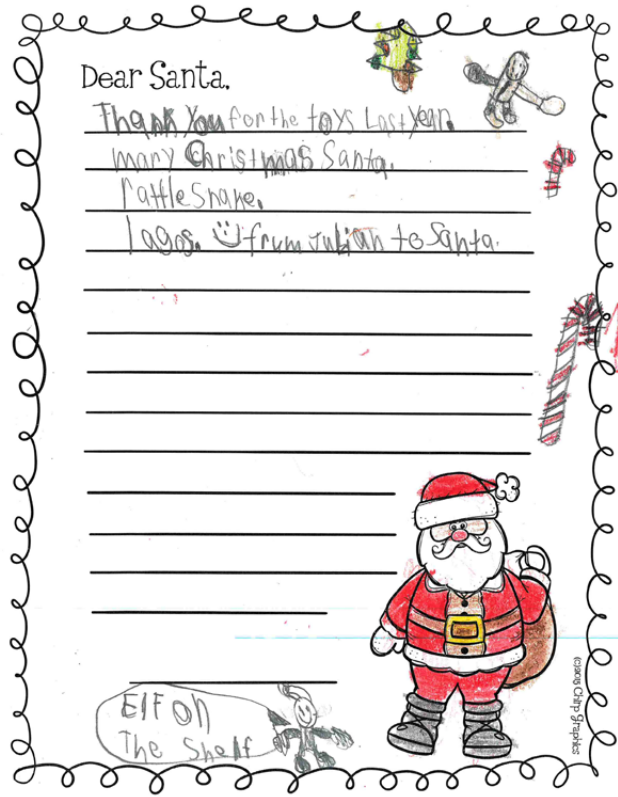 Dear Santa,
Thank You for the toys Last Year.
mary Christmas Santa.
rattle Snake.
lagos. frum Julian to Santa.
Elf on
The Shelf
(c)2013 Chirp Graphics